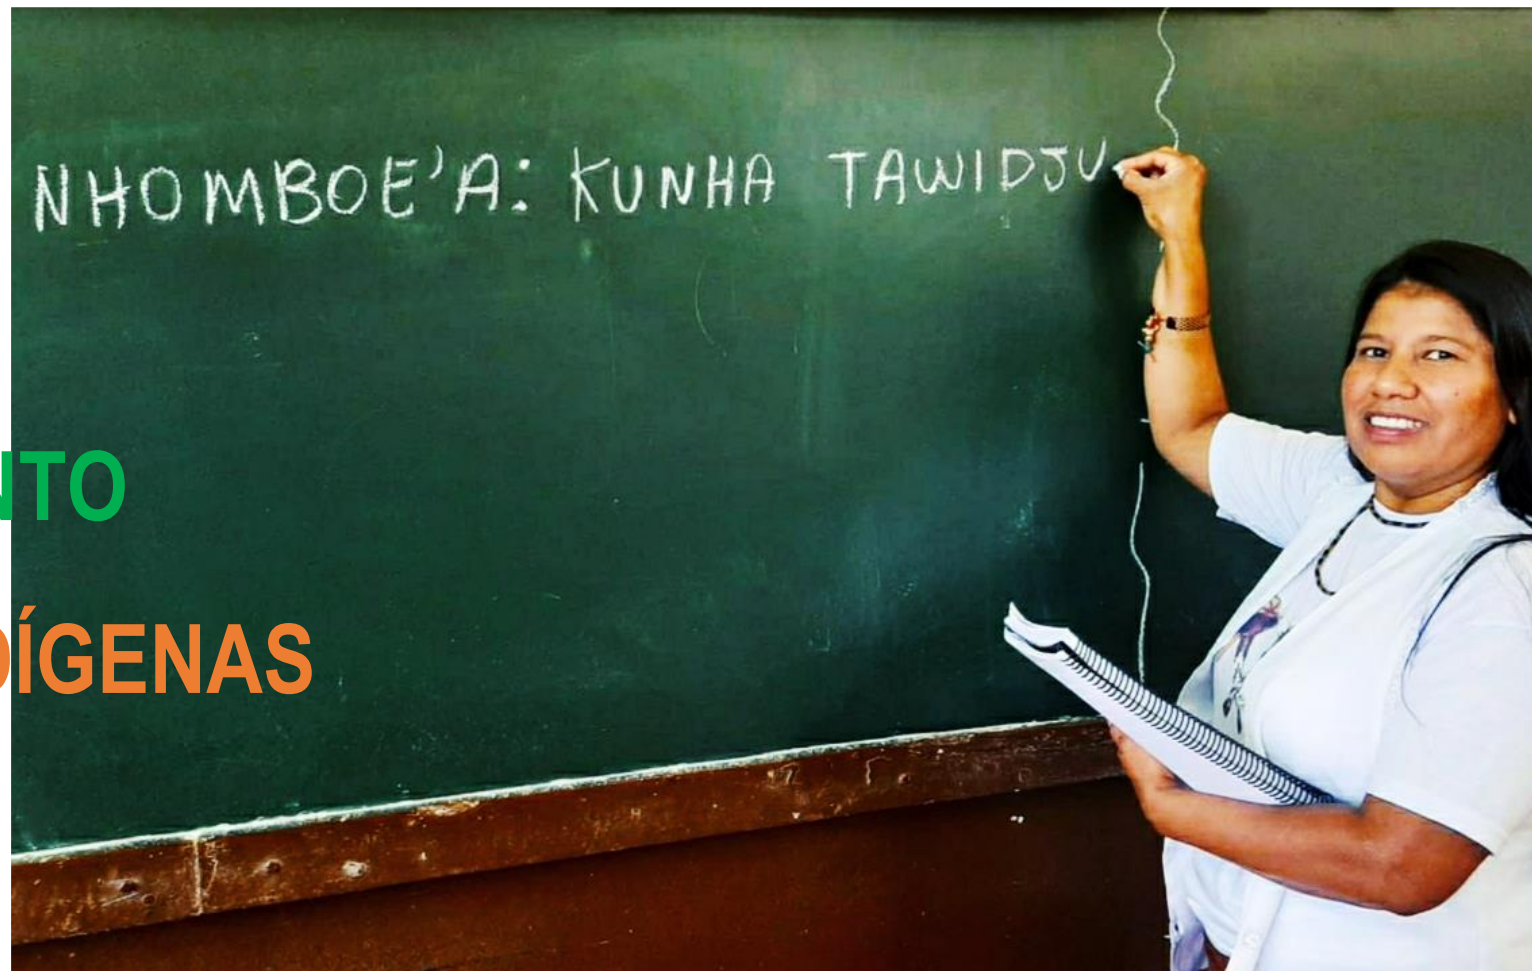 NHOMBOE'A: KUNHA TAWIDJU
NTO
DÍGENAS